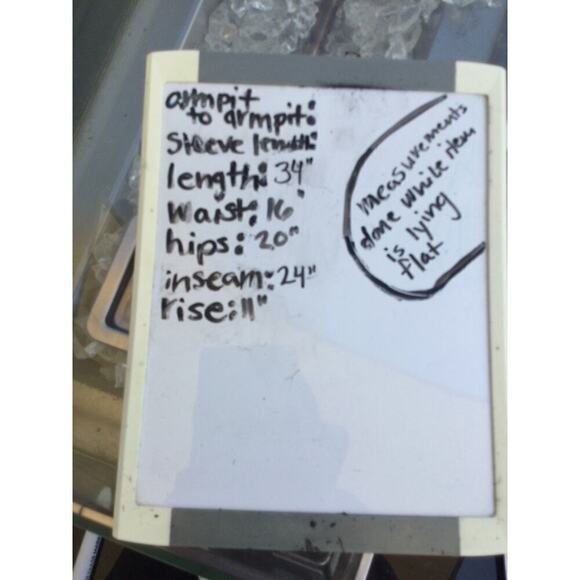 armpit
to armpit:
Sleeve length:
length: 34"
Waist: 16"
hips: 20"
inseam: 24"
rise: 11"
measurements
done while item
is lying
flat